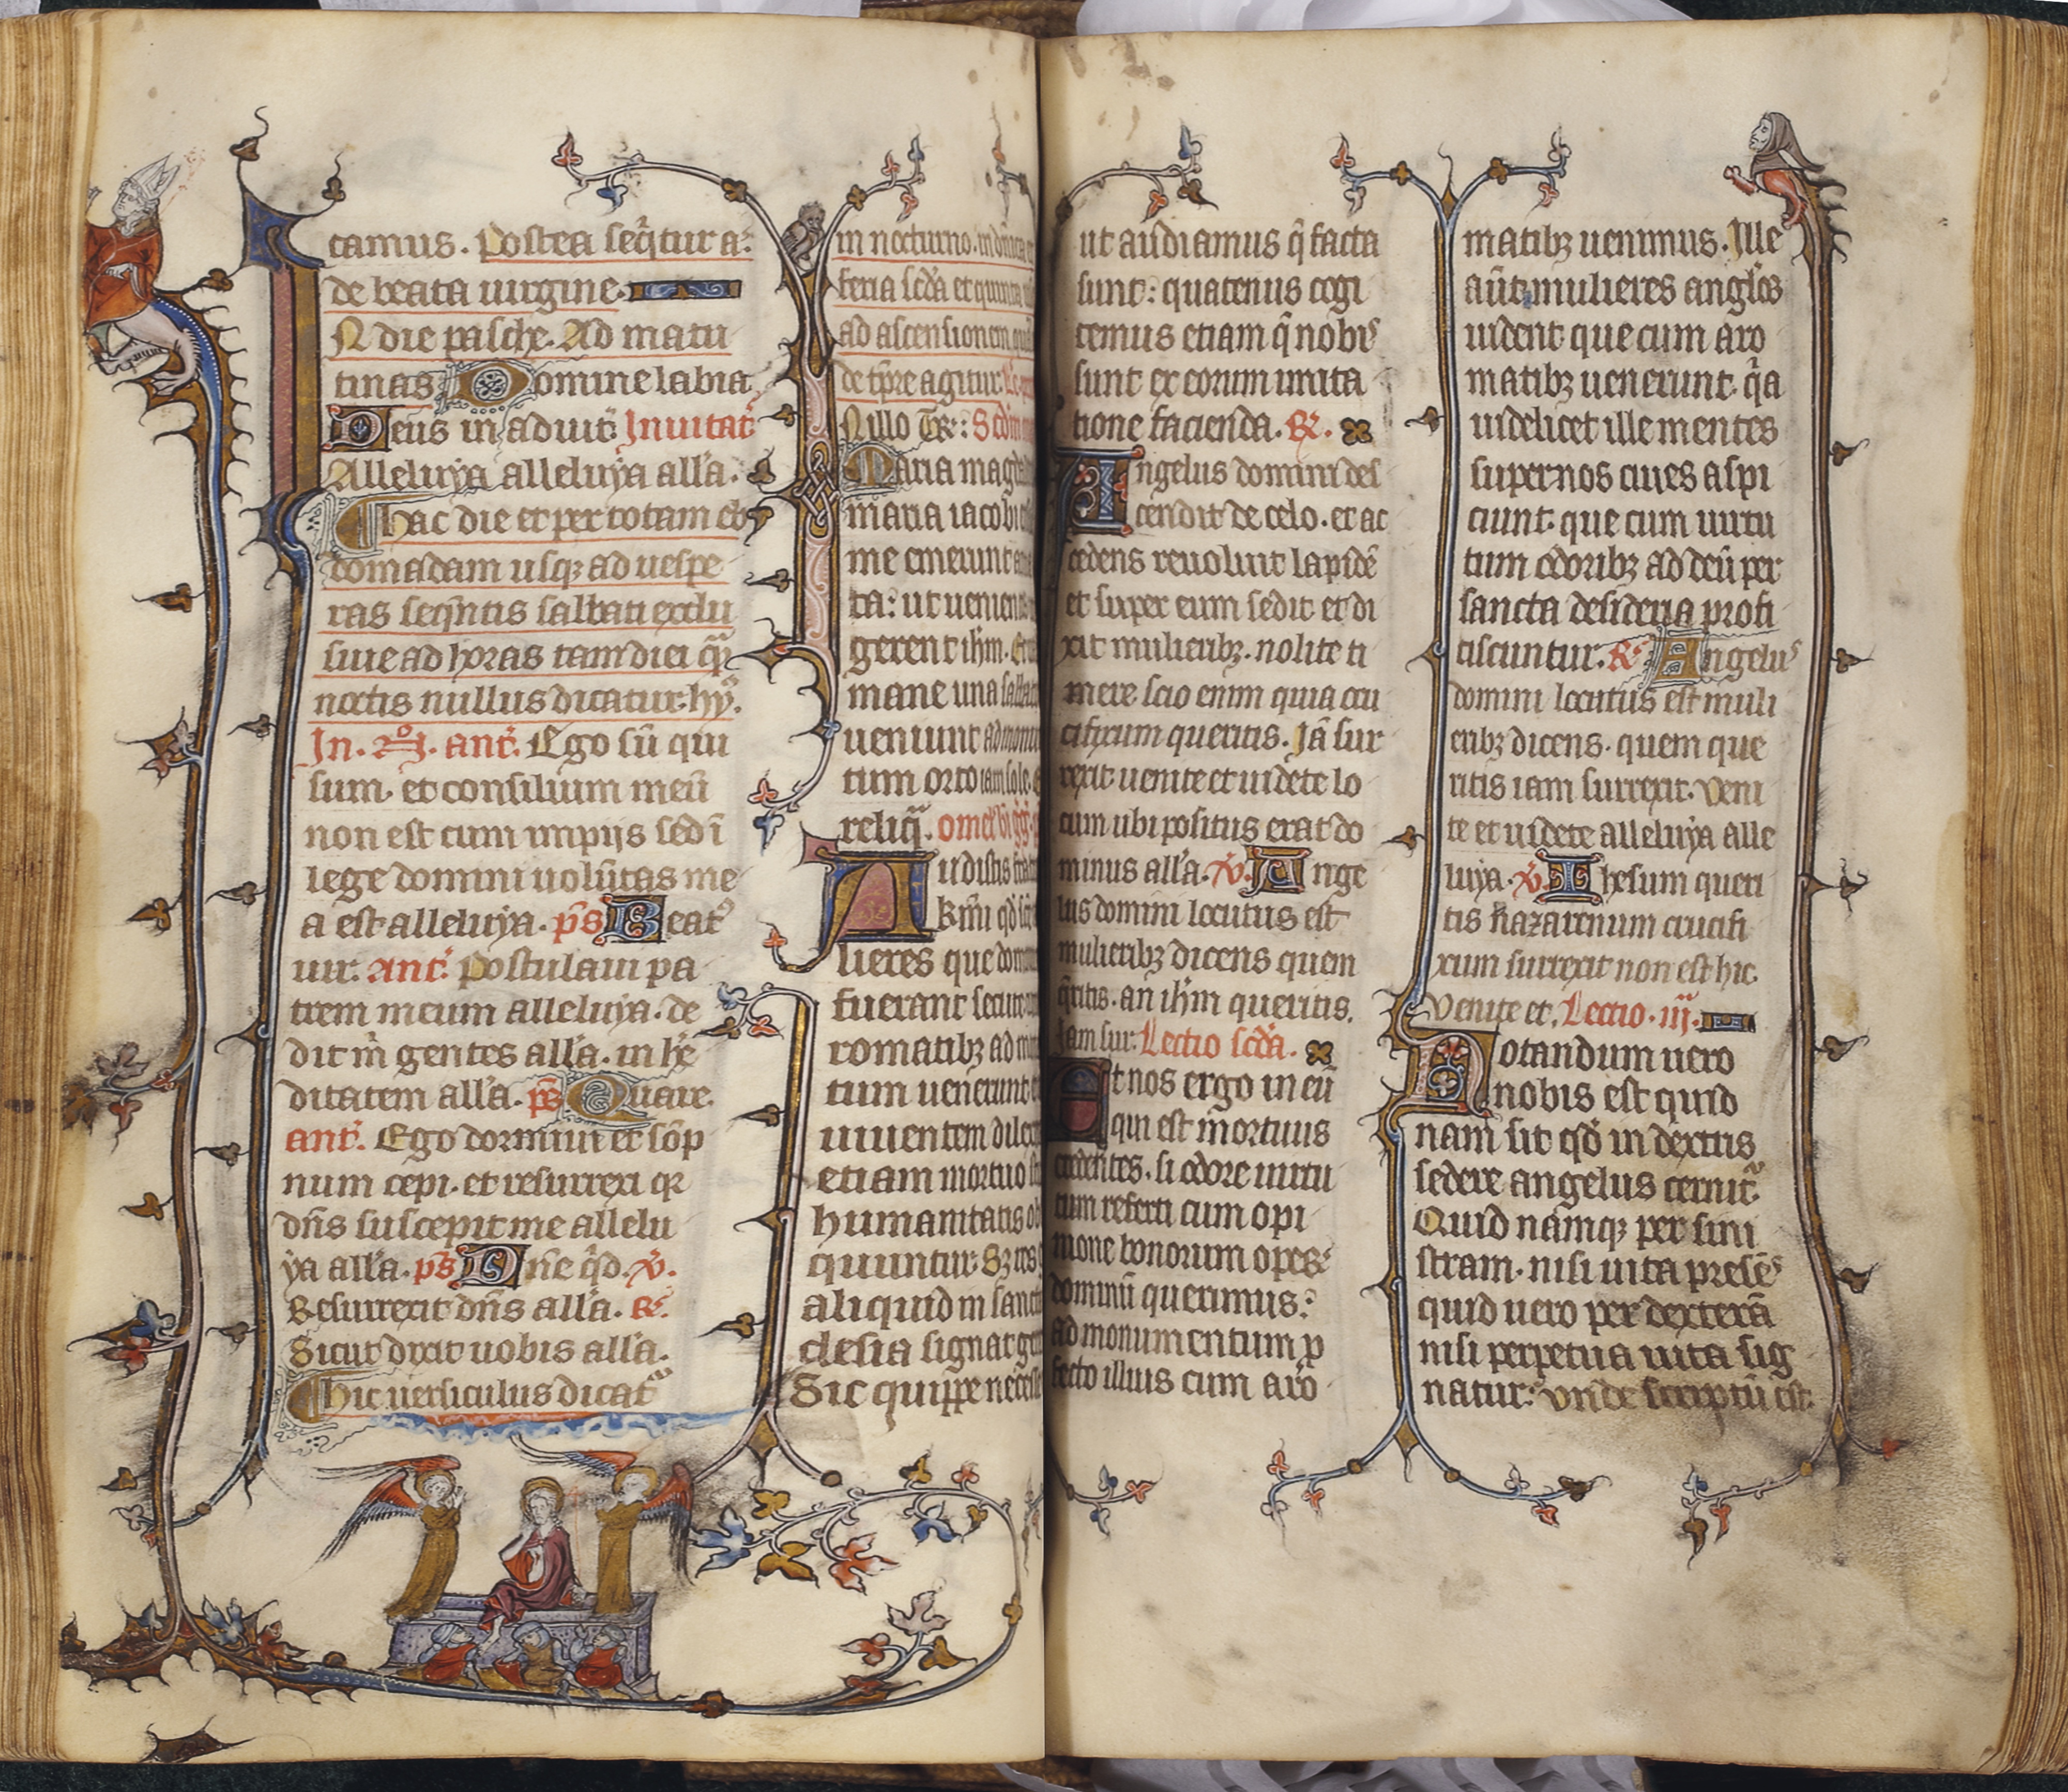 tamus. Postea seq̄tur a᷑
de beata uirgine.
N die pasche. Ad matu
tinas Domine labia
Deus in adiut᷑ Inuitat᷑
Alleluya alleluya all'a.
hac die et per totam eb
domadam usq; ad uespe
ras seqn̄tis sabbati exclu
siue ad horas tam diei q̄
noctis nullus dicatur hy᷑.
In. ant᷑. Ego sū qui
sum. et consilium meū
non est cum impijs sed ī
lege domini uolūtas me
a est alleluya. ps̄ Beat᷒
uir. Ant᷑. Postulaui pa
trem meum alleluya. de
dit m̄ gentes all'a. in he
ditatem all'a. ps̄ Quare.
ant᷑. Ego dormiui et sōp
num cepi. et resurrexi qꝛ
dn̄s suscepit me allelu
ya all'a. ps̄ Dn̄e q̄d. ꝟ.
Resurrexit dn̄s all'a. ℞.
Sicut dixit uobis all'a.
hic uersiculus dicat᷑
in nocturno. in dn̄ica
feria scd̄a et quinta
ad ascensionem
de tp̄re agitur.
N illo Tꝑ:
Maria magd
maria iacobi
me emerunt
ta: ut uenien
gerent ihm.
mane una sabbat
ueniunt ad monu
tum orto iam sole.
reliq̄. omel'
Audistis
km̄i qd̄
lieres que
fuerant secute
romatibꝫ ad
tum uenerunt
uiuentem dilex
etiam mortuo
humanitatis
quuntur. Sꝫ res
aliquid in sanct
clesia signat
Sic quippe necesse
ut audiamus q̄ facta
sunt: quatenus cogi
temus etiam q̄ nobis
sunt ex eorum imita
tione facienda. ℞.
Angelus domini des
cendit de celo. et ac
cedens reuoluit lapidē
et super eum sedit et di
xit mulieribꝫ. nolite ti
mere scio enim quia cru
cifixum queritis. Jā sur
rexit uenite et uidete lo
cum ubi positus erat do
minus all'a. ꝟ. Ange
lus domini locutus est
mulieribꝫ dicens quem
q̄ritis. an ihm queritis.
Jam sur. Lectio scd̄a.
Et nos ergo in eū
qui est mortuus
credentes. si odore uirtu
tum referti cum opi
nione bonorum opeꝝ
dominū querimus:
ad monumentum ꝓ
fecto illius cum aro
matibꝫ uenimus. Ille
aūt mulieres angl'os
uident que cum aro
matibꝫ uenerunt. q̄a
uidelicet ille mentes
supernos ciues aspi
ciunt. que cum uirtu
tum odoribꝫ ad deū per
sancta desideria profi
ciscuntur. ℞. Angelus
domini locutus est muli
eribꝫ dicens. quem que
ritis iam surrexit. Veni
te et uidete alleluya alle
luya. ꝟ. Ihesum queri
tis nazarenum crucifi
xum surrexit non est hic.
Venite et. Lectio. iij.
Notandum uero
nobis est quid
nam sit qd̄ in dextris
sedere angelus cernit᷑
Quid namqꝫ per sini
stram. nisi uita presēs
quid uero per dexterā
nisi perpetua uita sig
natur: vnde scriptū est.